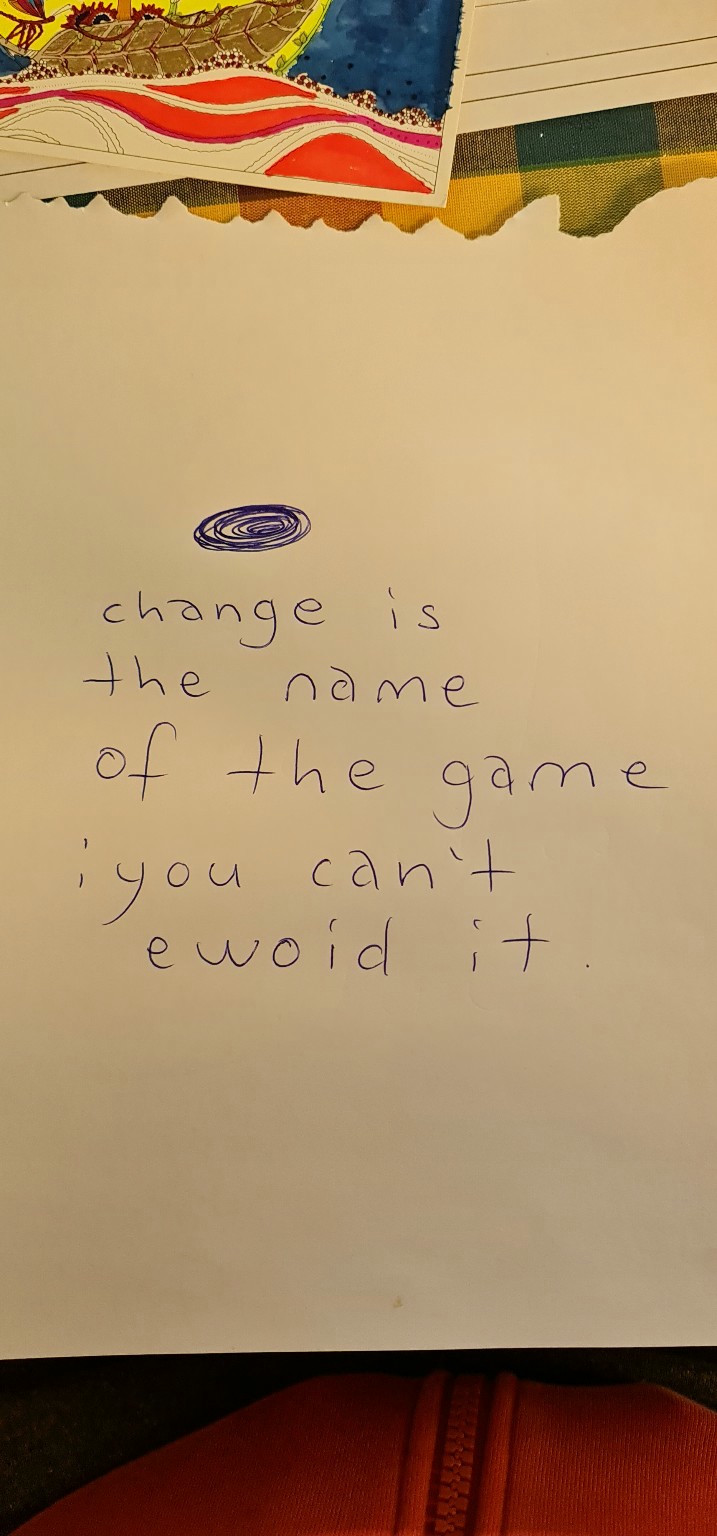 change is
the name
of the game
; you can't
ewoid it.